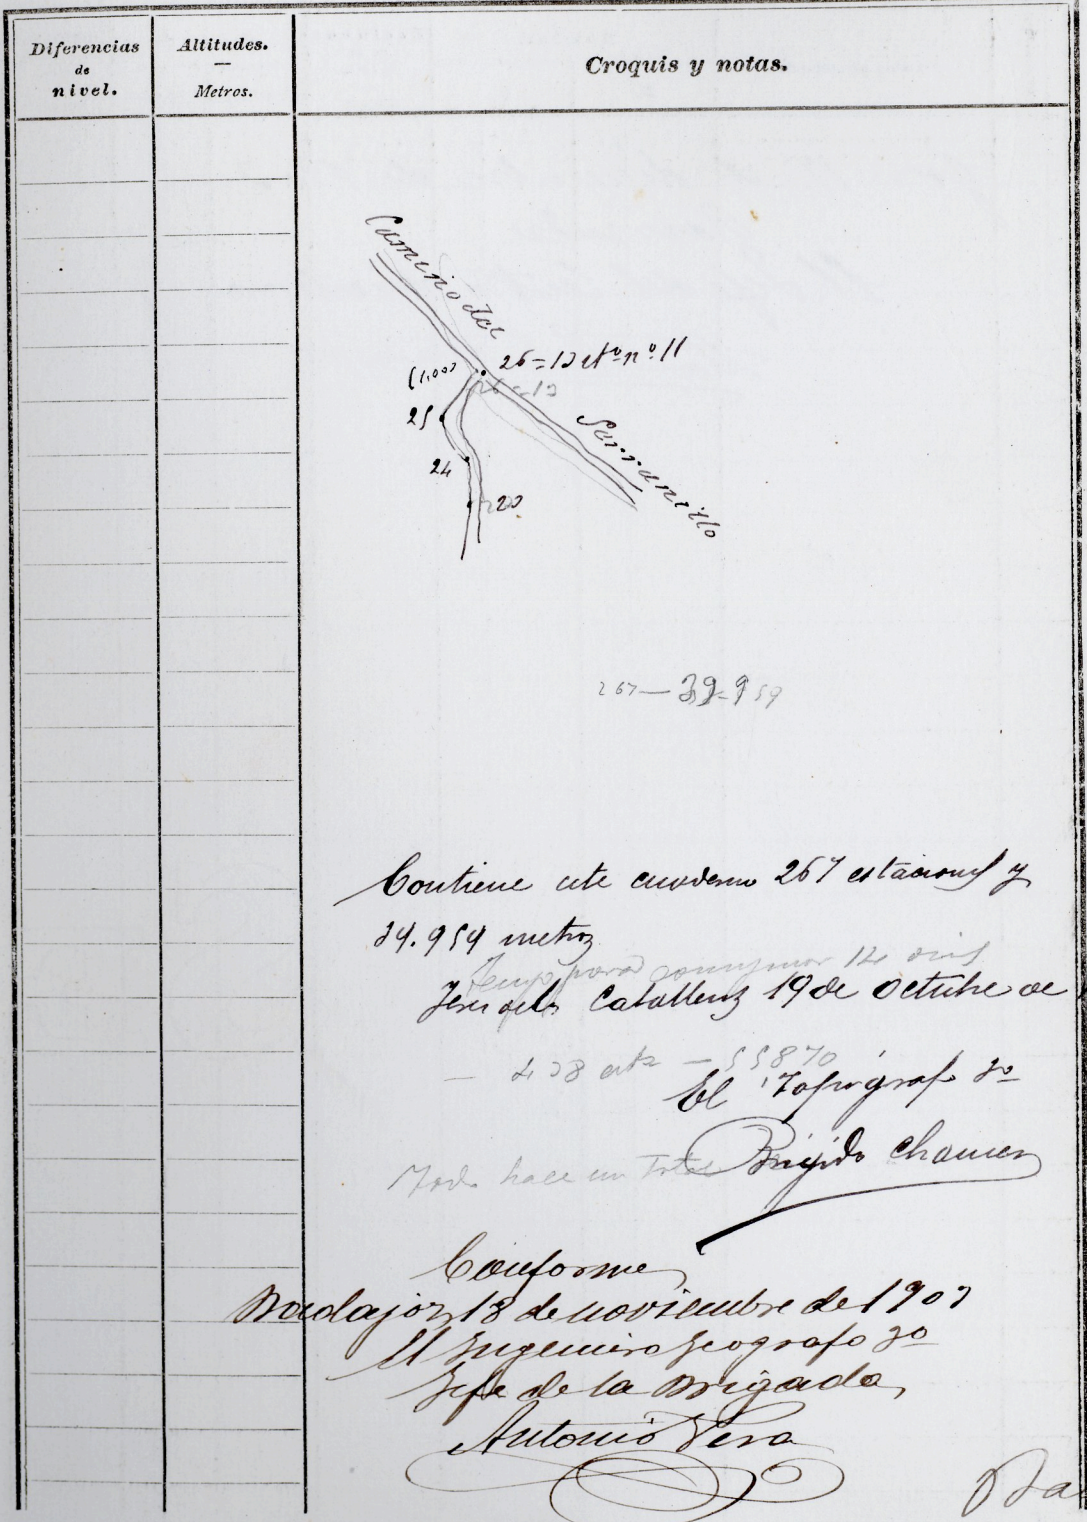 Diferencias
de
nivel.
Altitudes.
Metros.
Croquis y notas.
Camino del
26=12 n.º 11
(1,00)
26=12
25
Serranillo
24
20
267 — 39.959
Contiene este cuaderno 267 estaciones y
39.959 metros
para 12 dias
Jerez de los Caballeros 19 de Octubre de
— 55870
El Topógrafo 3º
Todo hace un Total
Brigido Chamer
Conforme
Badajoz 18 de noviembre de 1903
El Ingeniero Geografo 3º
Jefe de la Brigada,
Antonio Vera
Ba